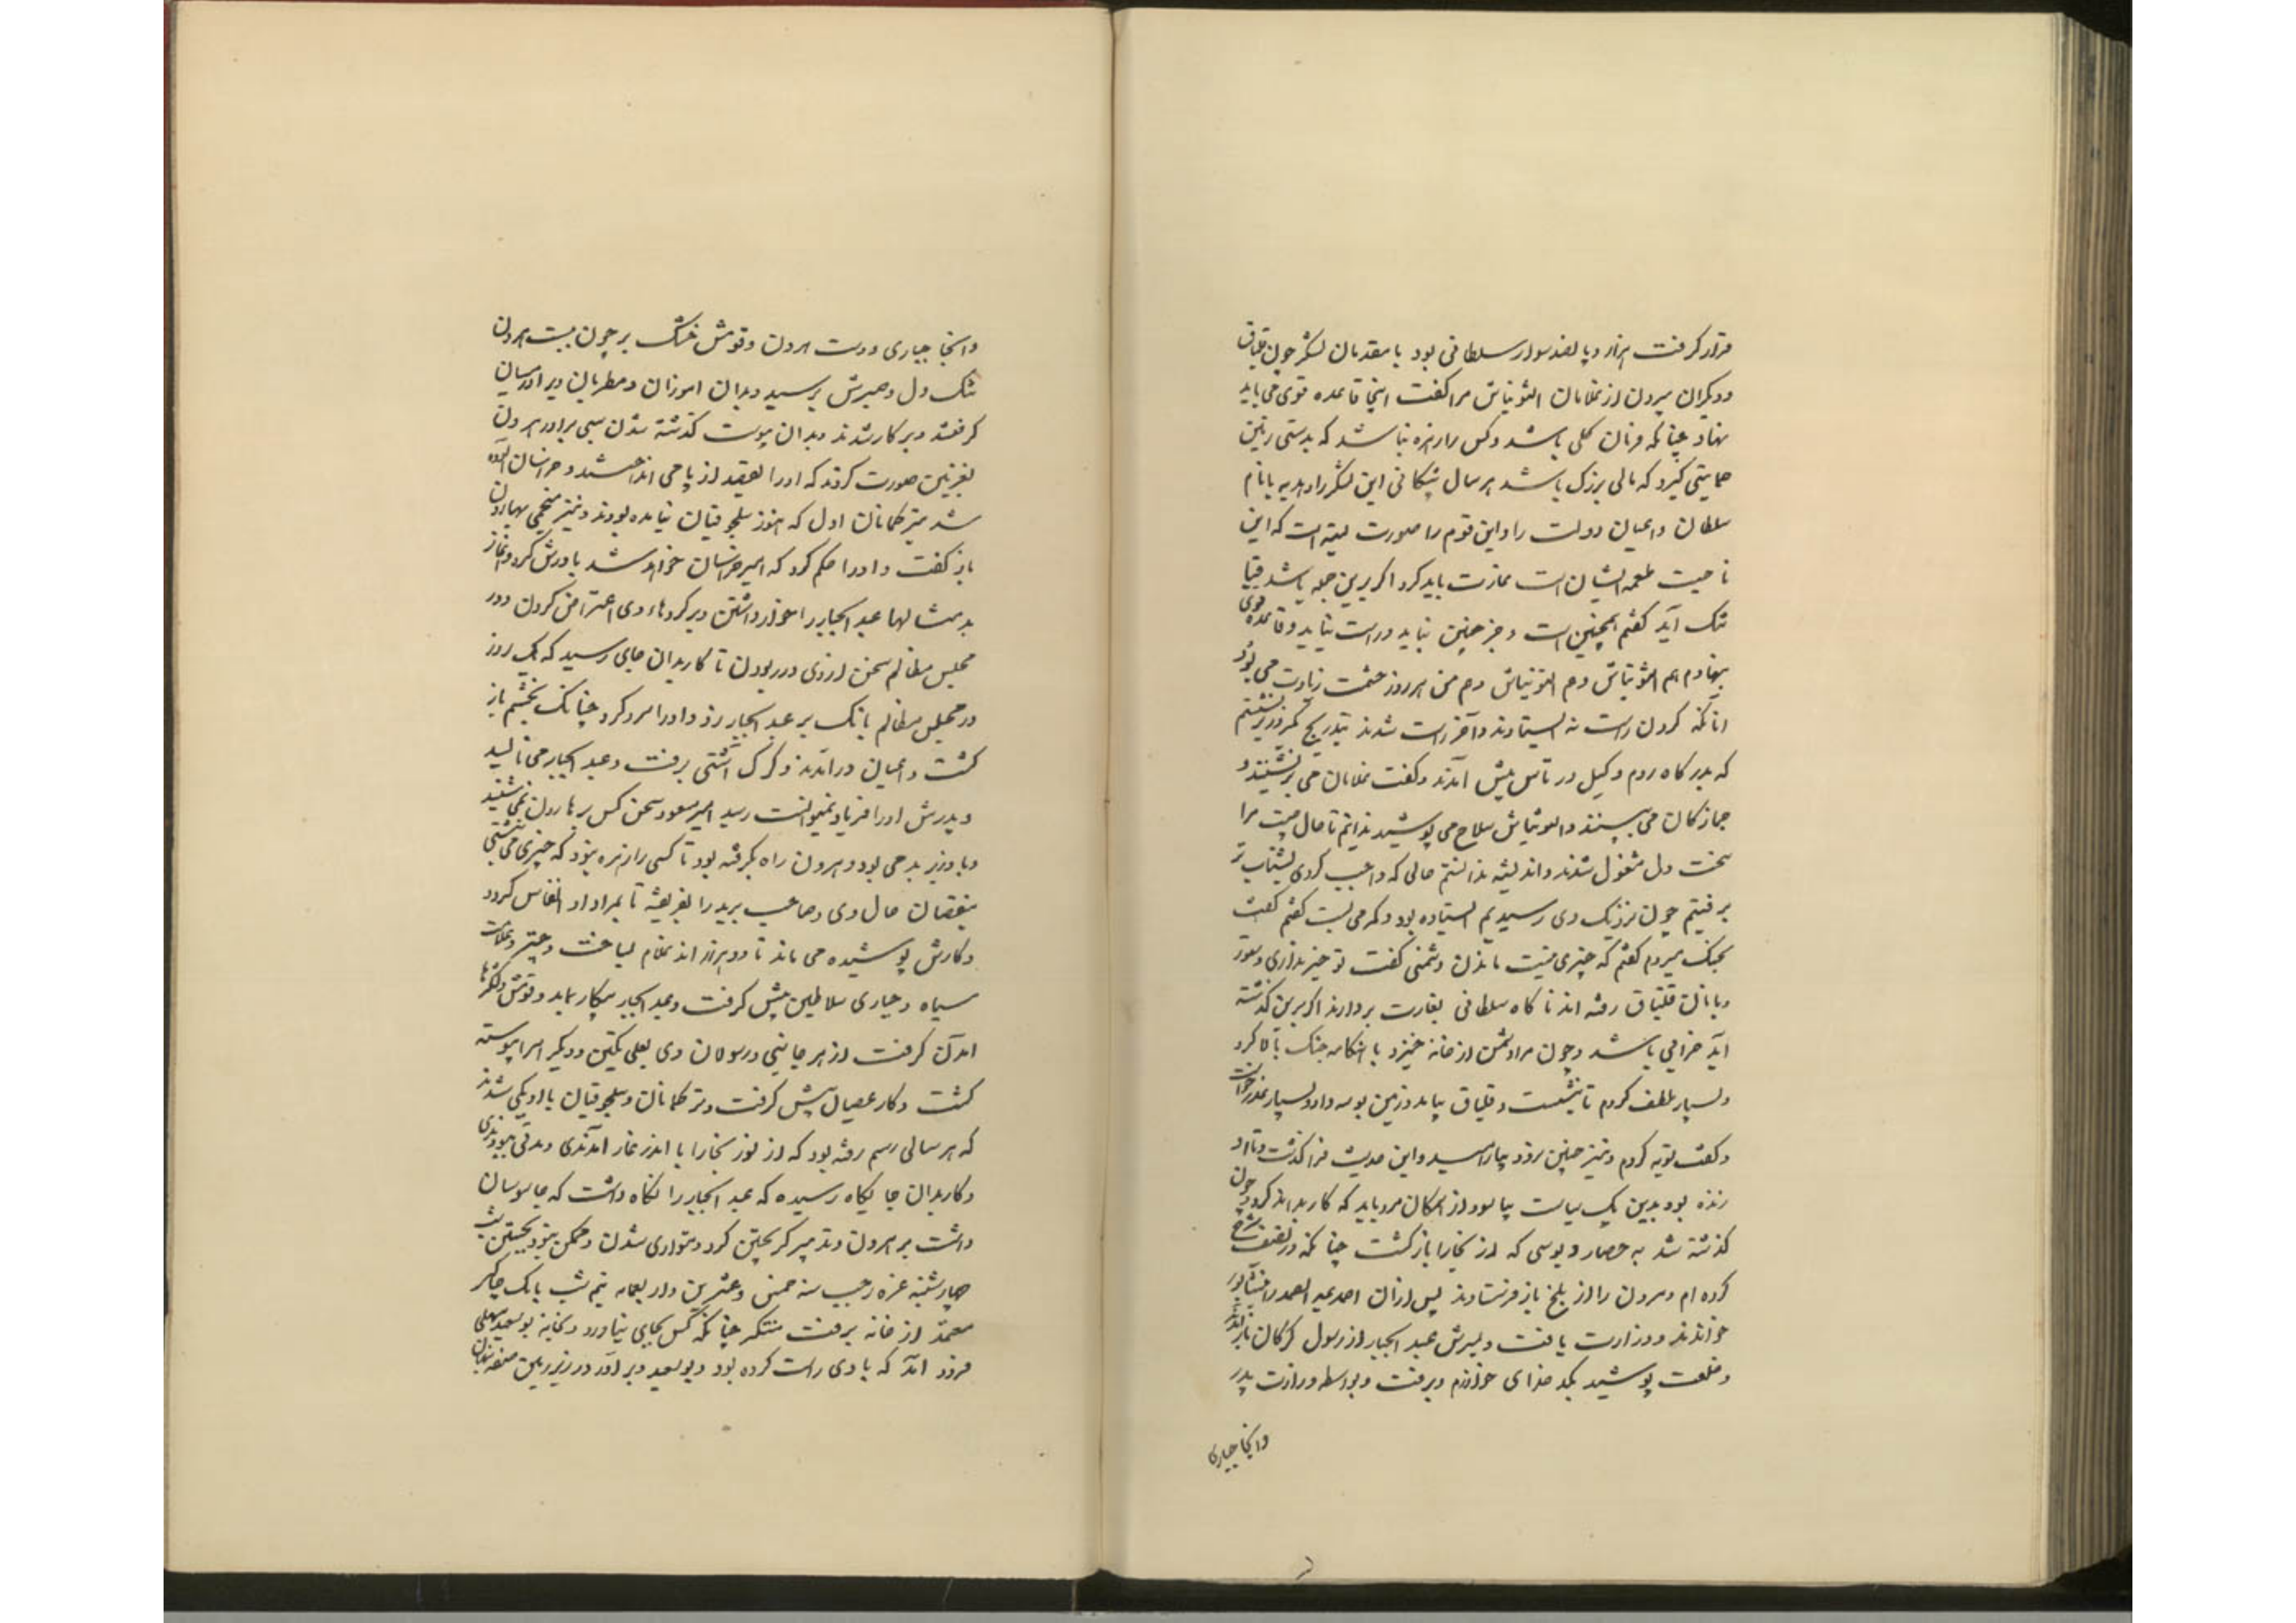 قرار گرفت هزار و پانصد سوار سلطانی بود با مقدمان لشکر چون قلباق
و دیگران بیرون از غلامان التونتاش مرا گفت اینجا قاعده قوی می باید
نهاد چنانکه فرمان کلی باشد و کس را زهره نباشد که بدستی زمین
حمایتی گیرد که مالی بزرگ باشد هر سال بیستگانی این لشکر را و هدیه با نام
سلطان و اعیان دولت را و این قوم را صورت بسته است که این
ناحیت طعمه ایشان است غارت باید کرد اگر برین جمله باشد قبا
تنگ آید گفتم همچنین است و جز چنین نباید و راست نیاید و قاعده قوی
بنهادم هم التونتاش و هم من هر روز حشمت زیادت می بود
آنانکه گردن راست نه ایستادند و آخر راست شدند بتدریج یک روز بر نشستم
که بدرگاه روم وکیل در تاش پیش آمد و گفت غلامان می بر نشینند و
جمازگان می بندند و التونتاش سلاح می پوشید ندانم تا حال چیست مرا
سخت دل مشغول شد و اندیشه ندانستم حالی که واجب کردی بشتاب تر
برفتم چون نزدیک وی رسیدیم ایستاده بود و کمر می بست گفتم
بجنگ میروم گفتم که خبری نیست بآمدن دشمنی گفت تو خبر نداری و ستور
بانان قلباق رفته اند تا کاه سلطانی بغارت بردارند اگر برین گذشته
آید خرابی باشد و چون مرا دشمن از خانه خیزد با آنکاه جنگ
و بسیار تلطف کردم تا بنشست و قلباق بیامد و زمین بوسه داد و بسیار عذر خواست
و گفت توبه کردم و نیز چنین نرود بیارامید و این حدیث فرا گذشت و تا او
زنده بود بدین یک سیاست بیاسود از همکان مرد باید که کار بداند کرد و چون
گذشته شد به حصار دبوسی که از بخارا باز گشت چنانکه در تصنیف شرح
کرده ام و هرون را از بلخ باز فرستادند پس از آن احمد عبد الصمد را بنیشابور
خواندند و وزارت یافت و پسرش عبد الجبار از رسول گرگان باز آمد
و خلعت پوشید بکدخدای خوارزم و برفت و بواسطه وزارت پدر
و اینجا جباری
و اینجا جباری و دست هرون و قومش خشک بر چون ببست هرون
تنگ دل و صبرش برسید و بدان آموزان و مطربان ویرا در میان
گرفتند و بر کار شدند و بدان پیوست گذشته شدن ستی برادر هرون
بغزنین صورت کردند که او را بقصد از بام انداختند و خراسان آلوده
شد بترکمانان اول که هنوز سلجوقیان نیامده بودند و نیز منجمی بهارون
باز گفت و او را حکم کرد که امیر خراسان خواهد شد باورش کرد و آغاز
بد مثالها عبد الجبار را خوار داشتن و بر کردهاء وی اعتراض کردن و در
مجلس مظالم سخن از وی در ربودن تا کار بدان جای رسید که یک روز
در مجلس مظالم بانگ بر عبد الجبار زد و او را سرد کرد چنانک بخشم باز
گشت و اعیان در آمدند و گرگ آشتی برفت و عبد الجبار می نالید
و پدرش او را فریاد نمیتوانست رسید امیر مسعود سخن کس بر هارون نمی شنید
و با وزیر بد می بود و هرون راه بگرفته بود تا کسی را زهره نبود که چیزی می نبشتی
بنقصان حال وی و صاحب برید را بفریفته تا بمراد او انفاس کردد
و کارش پوشیده می ماند تا دو هزار اند غلام بساخت و چتر و علامت
سیاه و جباری سلاطین پیش گرفت و عبد الجبار بیکار بماند و قومش و لشکرها
آمدن گرفت از هر جانبی و رسولان وی بعلی تکین و دیگر امرا پیوسته
گشت و کار عصیان پیش گرفت و ترکمانان و سلجوقیان با او یکی شدند
که هر سالی رسم رفته بود که از نور بخارا با اندر غار آمدندی و مدتی ببودندی
و کار بدان جایگاه رسیده که عبد الجبار را نگاه داشت که جاسوسان
داشت بر هرون و تدبیر گریختن کرد و متواری شدن و ممکن نبود بجستن شب
چهارشنبه غره رجب سنه خمس و عشرین و اربعمایه نیم شب با یک چاکر
معتمد از خانه برفت متنکر چنانکه کس بجای نیاورد و بخانه بو سعید سهلی
فرود آمد که با وی راست کرده بود و بو سعید ویرا در در زیر زمین صفه پنهان